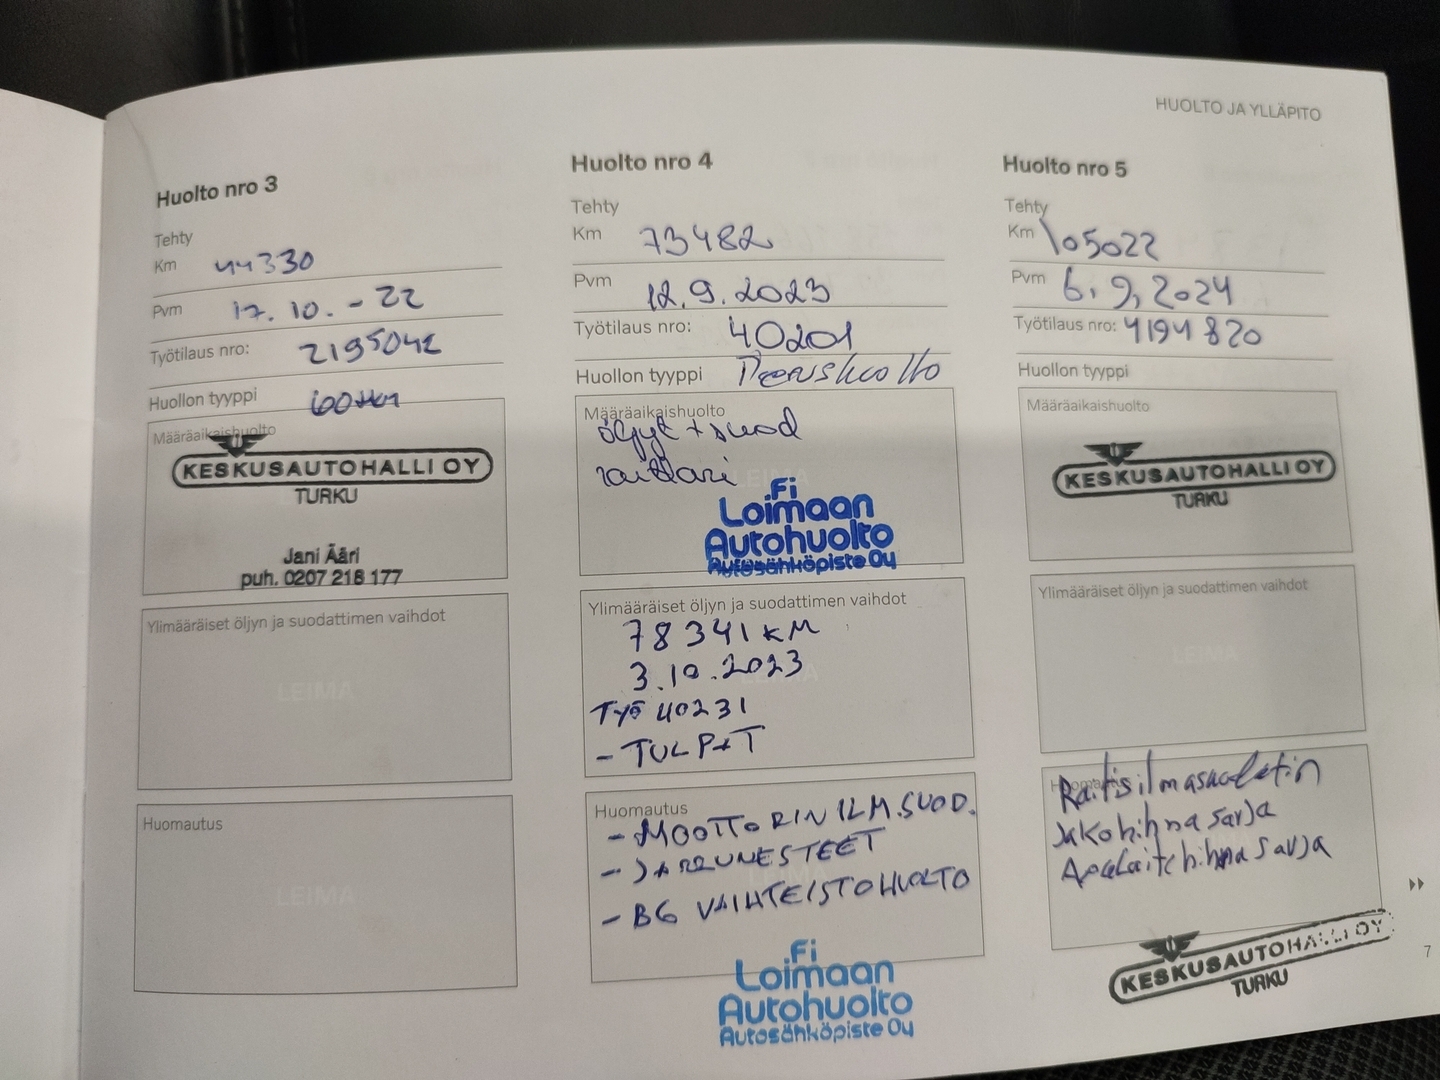 HUOLTO JA YLLÄPITO
Huolto nro 3
Tehty
Km 44330
Pvm 17.10.-22
Työtilaus nro: 2195042
Huollon tyyppi 60tkm
Määräaikaishuolto
KESKUSAUTOHALLI OY
TURKU
Jani Ääri
puh. 0207 218 177
Ylimääräiset öljyn ja suodattimen vaihdot
LEIMA
Huomautus
LEIMA
Huolto nro 4
Tehty
Km 73482
Pvm 12.9.2023
Työtilaus nro: 40201
Huollon tyyppi Perushuolto
Määräaikaishuolto
öljyt + suod
raitisari
LEIMA
.Fi
Loimaan
Autohuolto
Autosähköpiste Oy
Ylimääräiset öljyn ja suodattimen vaihdot
78341 KM
3.10.2023
TYÖ 40231
- TULPAT
Huomautus
- MOOTTORIN ILM.SUOD.
- JARRUNESTEET
- BG VAIHTEISTOHUOLTO
.Fi
Loimaan
Autohuolto
Autosähköpiste Oy
Huolto nro 5
Tehty
Km 105022
Pvm 6.9.2024
Työtilaus nro: 4194820
Huollon tyyppi
Määräaikaishuolto
KESKUSAUTOHALLI OY
TURKU
Ylimääräiset öljyn ja suodattimen vaihdot
LEIMA
Huomautus
Raitisilmasuodatin
Jakohihnasarja
Apulaitehihnasarja
KESKUSAUTOHALLI OY
TURKU
7